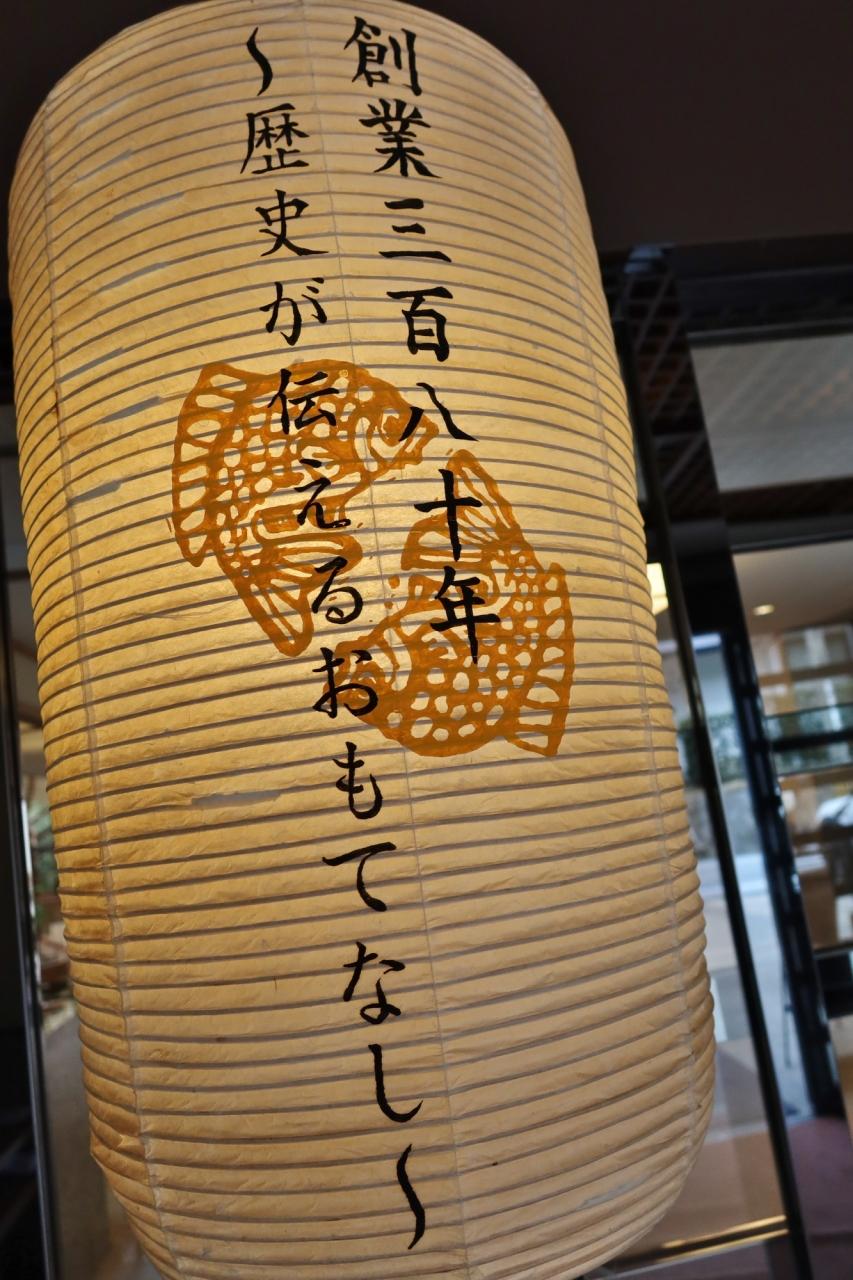 創業三百八十年
〜歴史が伝えるおもてなし〜